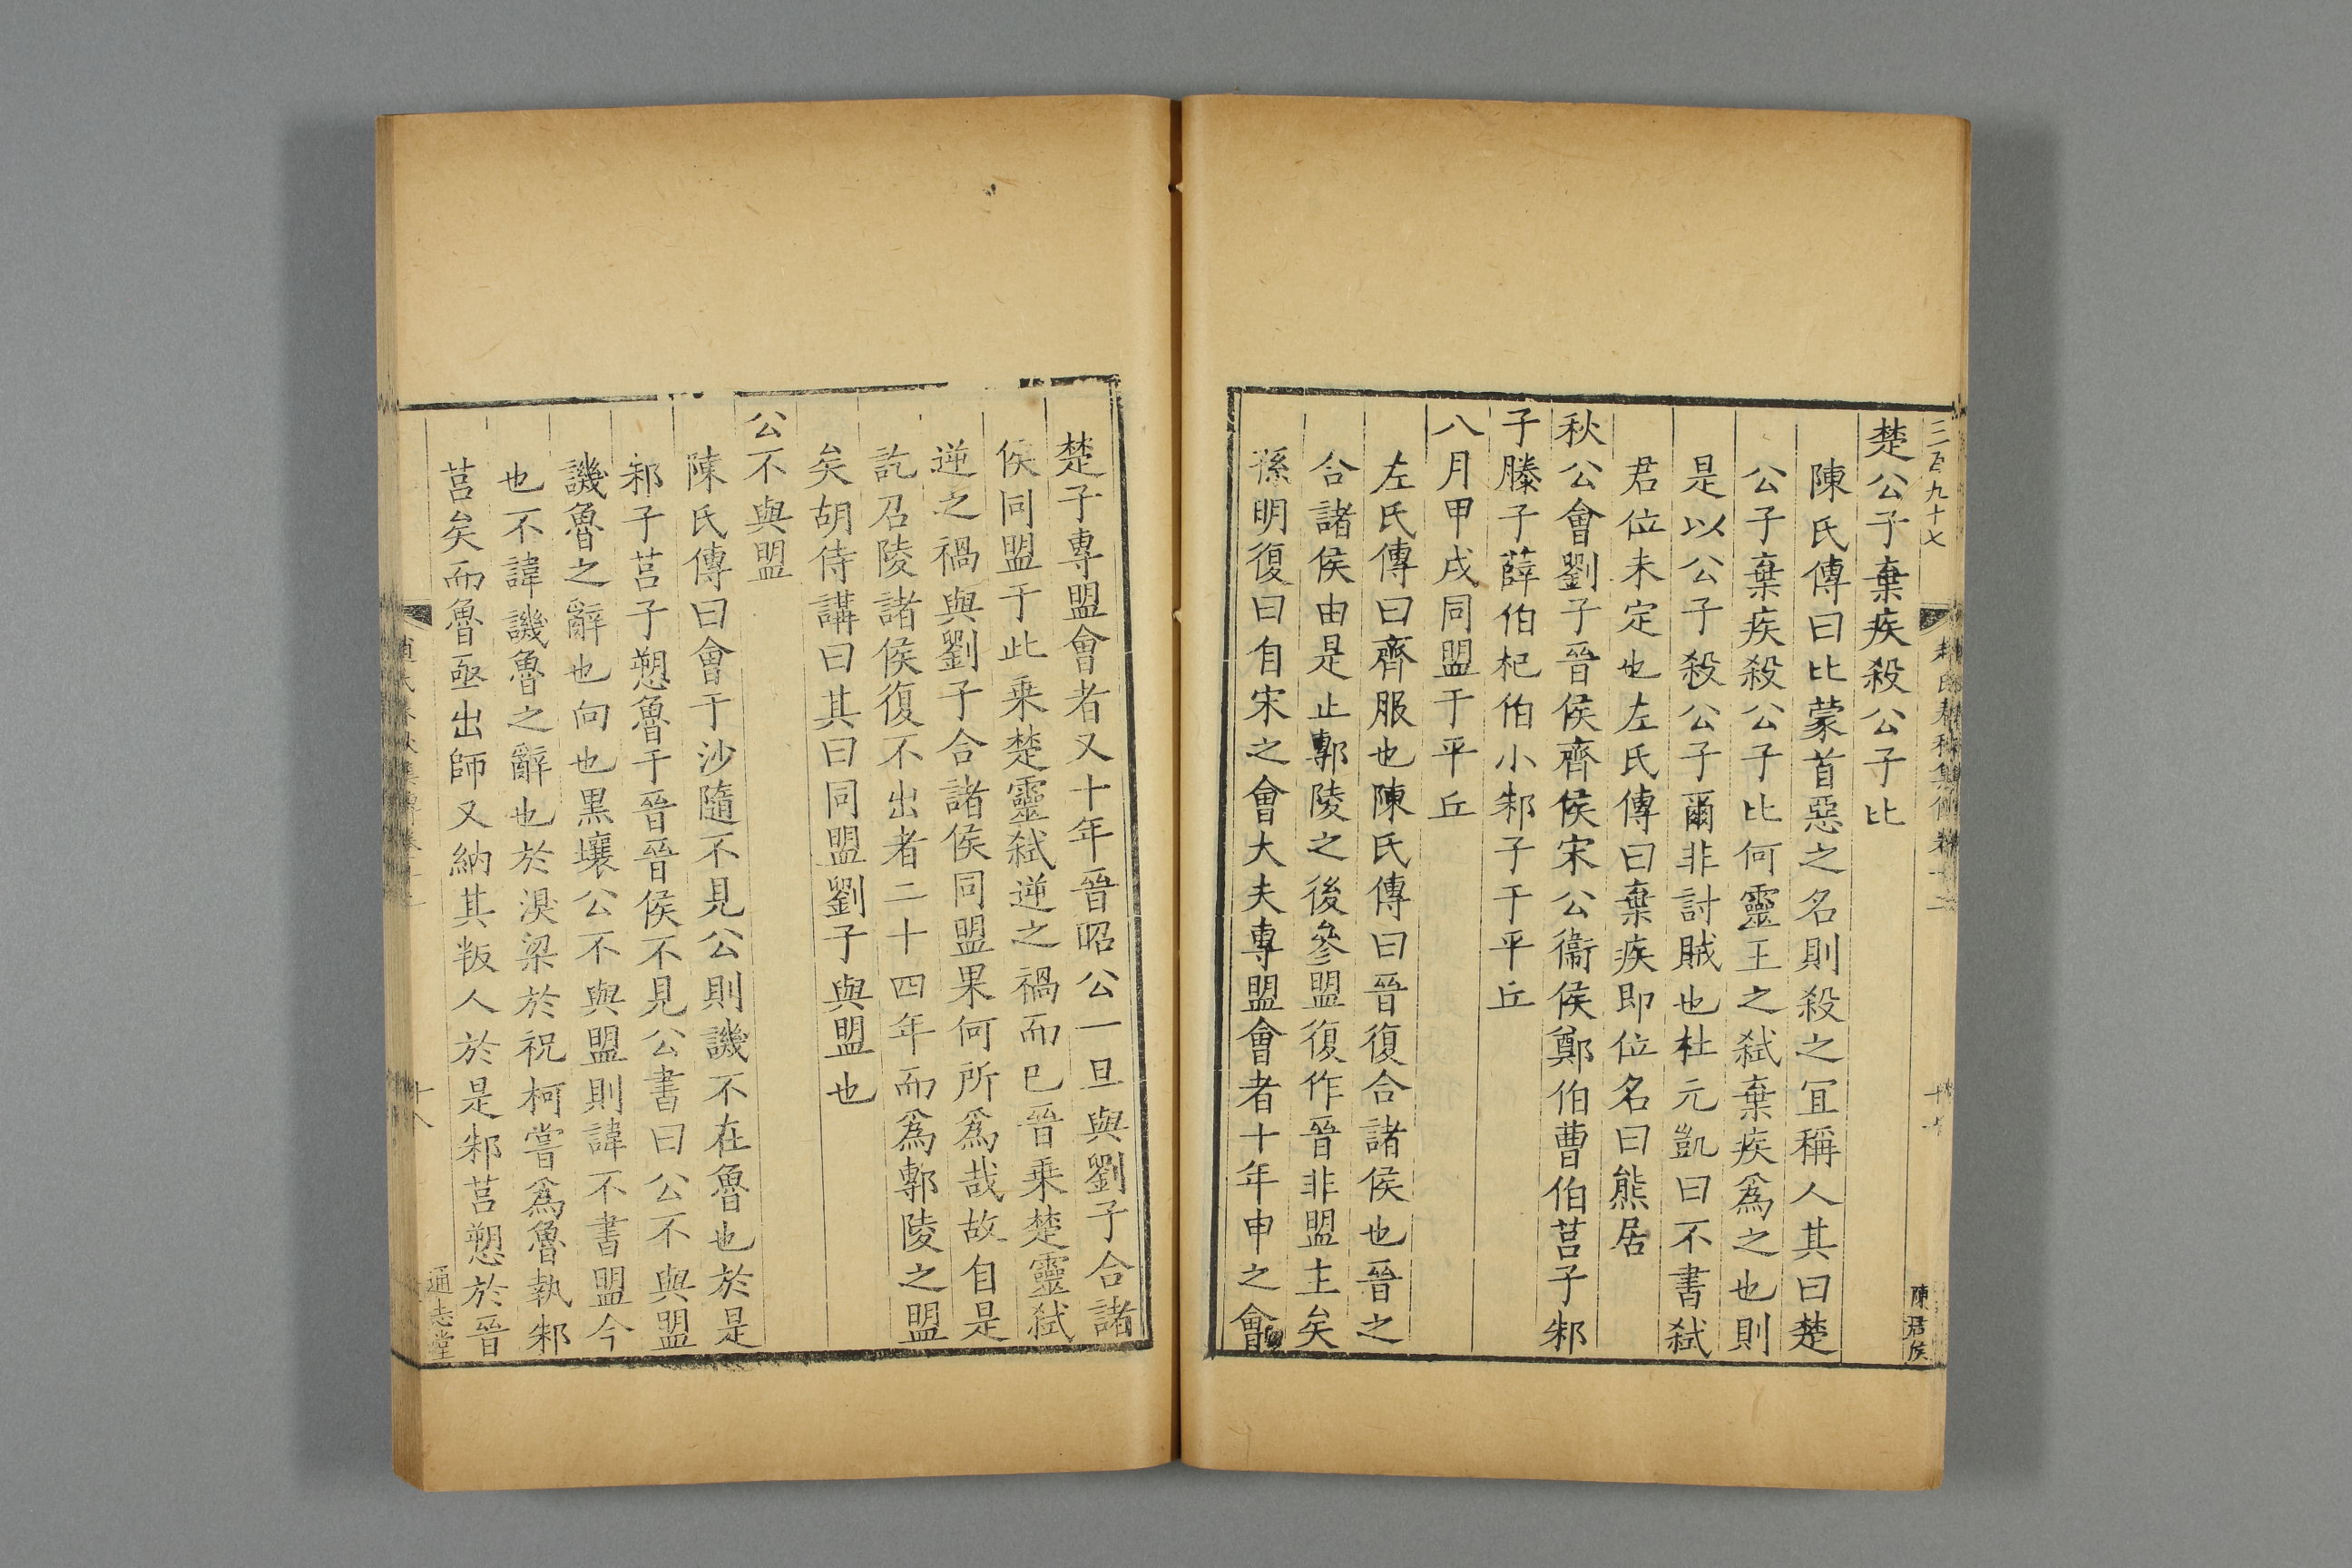 三百九十七
陳君侯
楚公子棄疾殺公子比
陳氏傳曰比蒙首惡之名則殺之宜稱人其曰楚
公子棄疾殺公子比何靈王之弑棄疾爲之也則
是以公子殺公子爾非討賊也杜元凱曰不書弑
君位未定也左氏傳曰棄疾即位名曰熊居
秋公會劉子晉侯齊侯宋公衞侯鄭伯曹伯莒子邾
子滕子薛伯杞伯小邾子于平丘
八月甲戌同盟于平丘
左氏傳曰齊服也陳氏傳曰晉復合諸侯也晉之
合諸侯由是止鄟陵之後參盟復作晉非盟主矣
孫明復曰自宋之會大夫專盟會者十年申之會
楚子專盟會者又十年晉昭公一旦與劉子合諸
侯同盟于此乗楚靈弑逆之禍而巳晉乗楚靈弑
逆之禍與劉子合諸侯同盟果何所爲哉故自是
訖召陵諸侯復不出者二十四年而爲鄟陵之盟
矣胡侍講曰其曰同盟劉子與盟也
公不與盟
陳氏傳曰會于沙隨不見公則譏不在魯也於是
邾子莒子愬魯于晉晉侯不見公書曰公不與盟
譏魯之辭也向也黒壤公不與盟則諱不書盟今
也不諱譏魯之辭也於湨梁於祝柯嘗爲魯執邾
莒矣而魯亟出師又納其叛人於是邾莒愬於晉
十八
通志堂